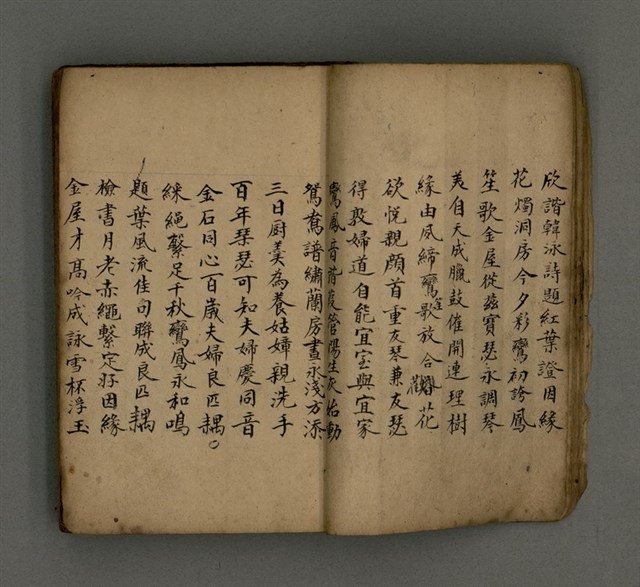 欣諧韓泳詩題紅葉證因緣
花燭洞房今夕彩鸞初誇鳳
笙歌金屋從茲寶瑟永調琴
美自天成臘鼓催開連理樹
緣由夙締鸞歌放合歡花
欲悅親顏首重友琴兼友瑟
得敦婦道自能宜室與宜家
鸞鳳音諧葭管陽生灰始動
鴛鴦譜繡蘭房晝永淺方添
三日厨羹為養姑嫜親洗手
百年琹瑟可知夫婦慶同音
金石同心百歲夫婦良匹耦。
綵繩繫足千秋鸞鳳永和鳴
題葉風流佳句聯成良匹耦
檢書月老赤繩繫定好因緣
金屋才高吟成詠雪杯浮玉